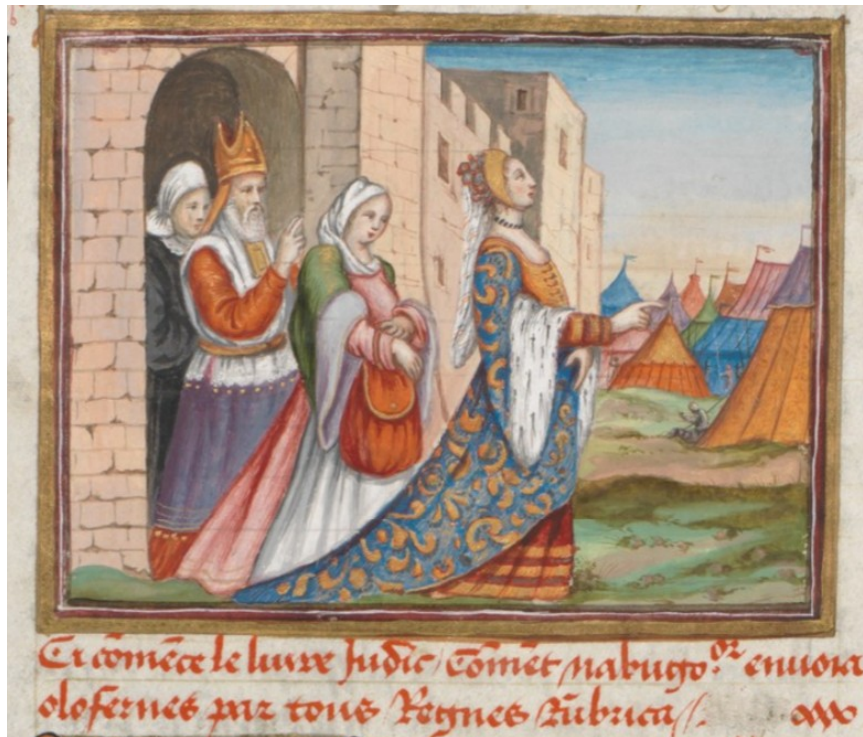 Ci cōmēce le livre Judic Cōmēt nabugo.or envoia
olofernes par tous Regnes Rubrica